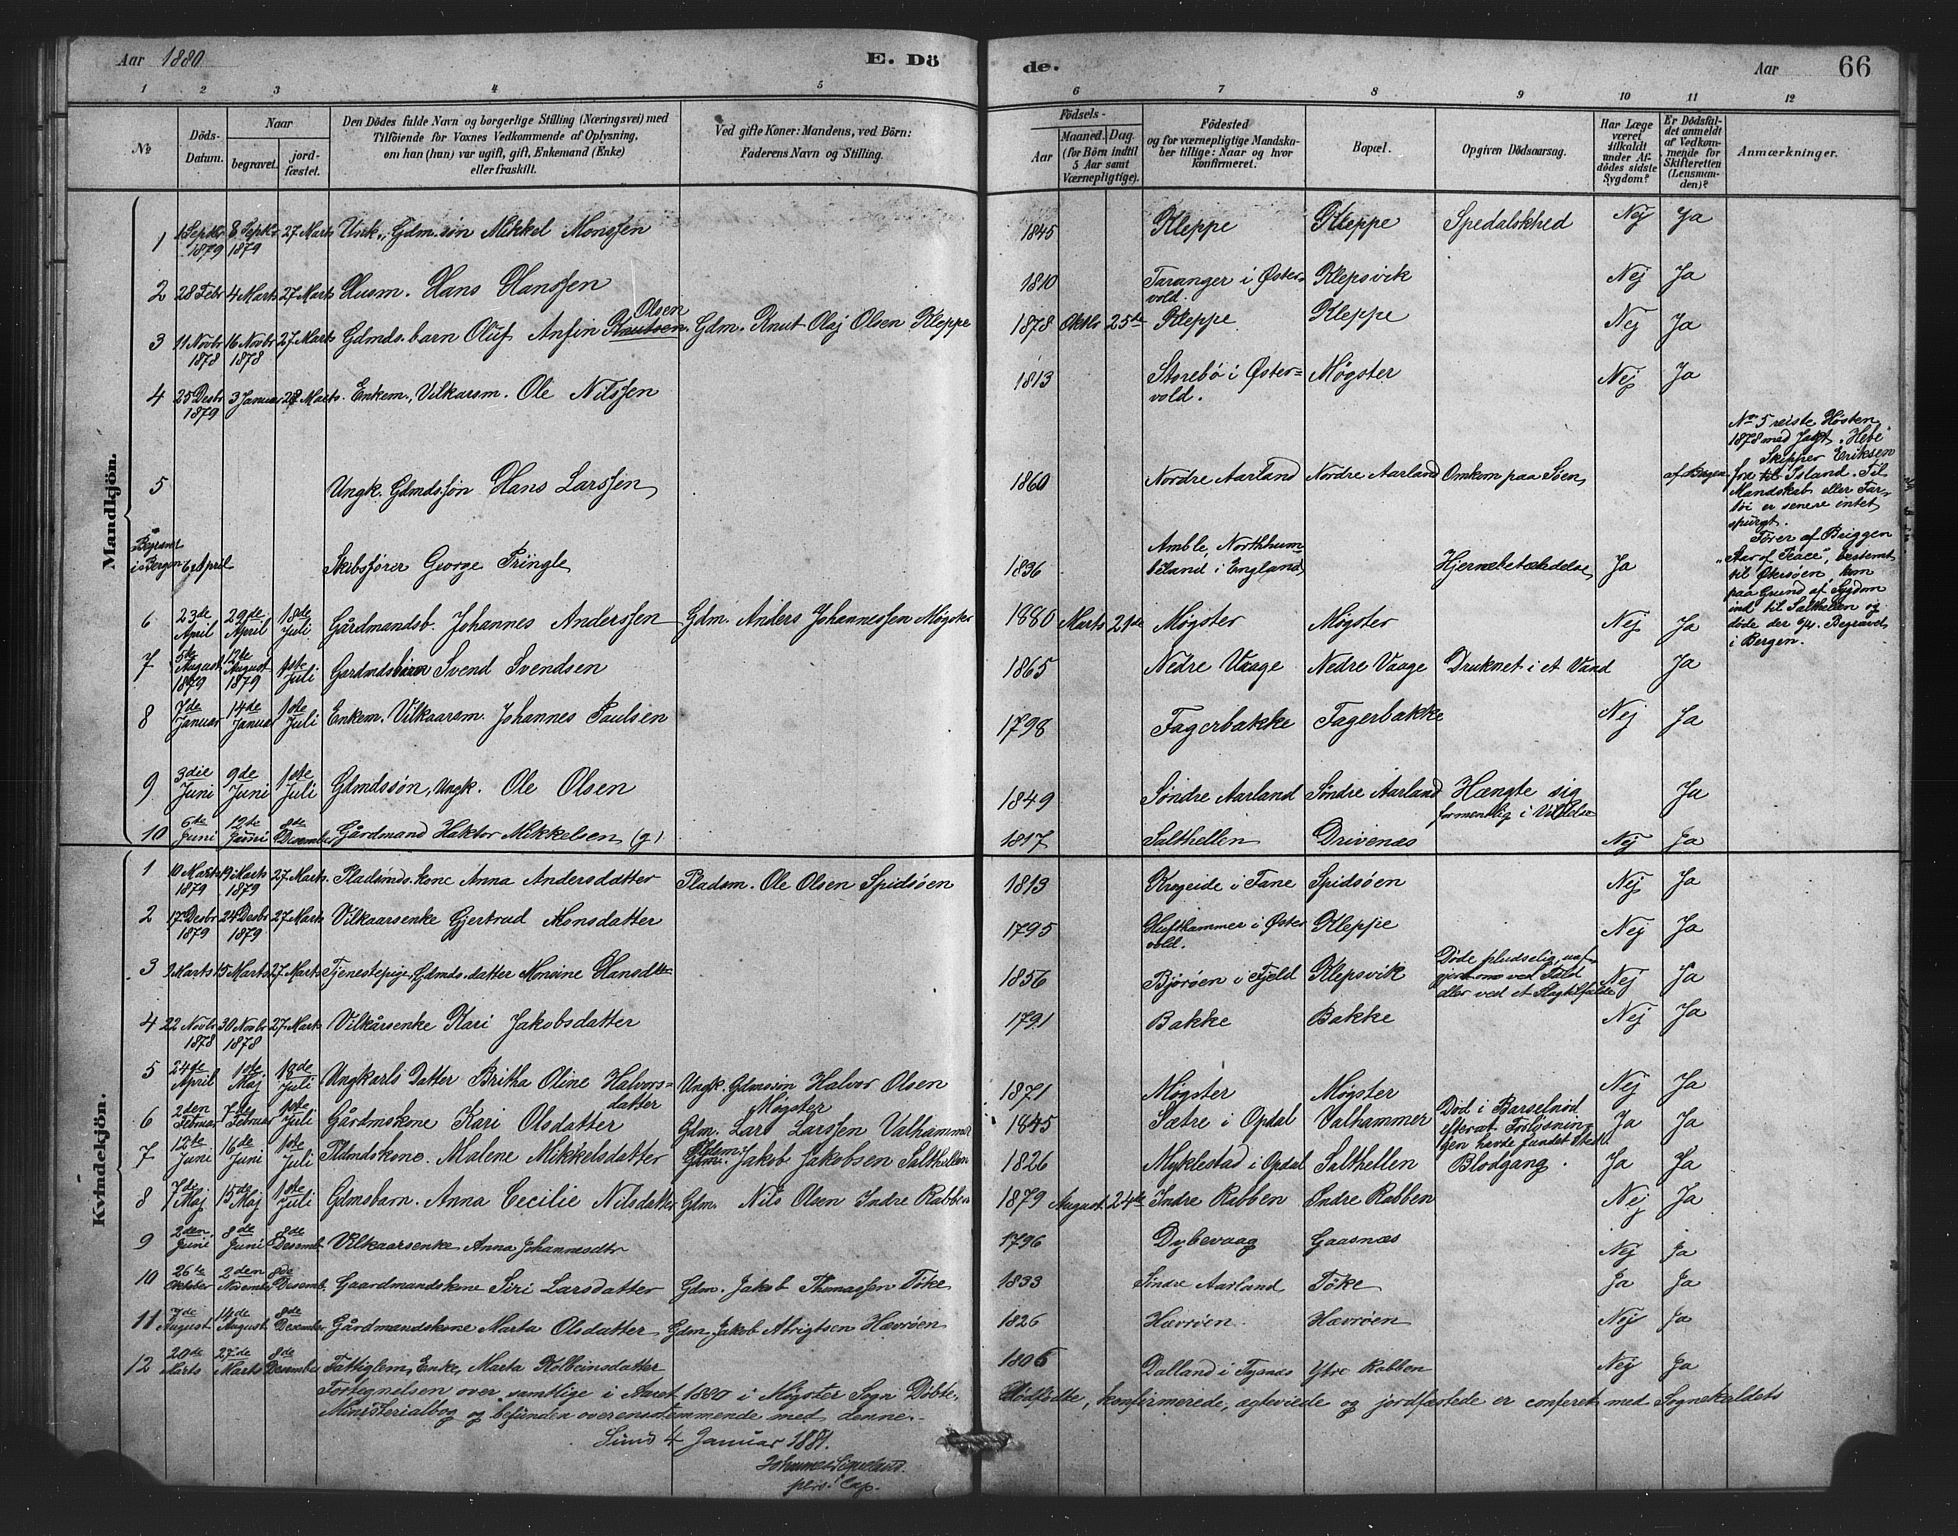 Aar 1880
E. Döde.
Aar 66
1 2 3 4 5 6 7 8 9 10 11 12
№
Döds-Datum.
Naar
begravet.
jordfæstet.
Den Dödes fulde Navn og borgerlige Stilling (Næringsvei) med
Tilföiende for Voxnes Vedkommende af Oplysning,
om han (hun) var ugift, gift, Enkemand (Enke)
eller fraskilt.
Ved gifte Koner: Mandens, ved Börn:
Faderens Navn og Stilling.
Födsels-
Aar
Maaned. Dag.
(for Börn indtil
5 Aar samt
Værnepligtige).
Födested
og for værnepligtige Mandskaber tillige: Naar og hvor
konfirmeret.
Bopæl.
Opgiven Dödsaarsag.
Har Læge
været
tilkaldt
under Afdödes sidste
Sygdom?
Er Dödsfaldet anmeldt
af Vedkommende for
Skifteretten
(Lensmanden)?
Anmærkninger.
Mandkjön.
1 1 Septbr 1879 8 Septbr 1879 27 Marts Ungk., Gdm.søn Mikkel Monssen 1845 Kleppe Kleppe Spedalskhed Nej Ja
2 28 Febr 4 Marts 27 Marts Husm. Hans Hanssen 1810 Taranger i Østervold. Klepsvik Nej Ja
3 11 Novbr 1878 16 Novbr 1878 27 Marts Gdmds. barn Oluf Anfin Knutsen Olsen Gdm. Knut Olaj Olsen Kleppe 1878 Oktbr 25de Kleppe Kleppe Nej Ja
4 25 Desbr 1879 3 Januar 28 Marts. Enkem., Vilkaarsm. Ole Nilssen 1813 Storebö i Østervold. Møgster Nej Ja
5 Ungk. Gdmdssøn Hans Larssen 1860 Nordre Aarland Nordre Aarland Omkom paa Søen
No 5 reiste Høsten
1878 med Jagt "Hebe"
Skipper Eriksen
af Bergen
til Island. Til
Mandskab eller Fartöi er senere intet
spurgt.
Begravet i Bergen 6 April Skibsfører George Pringle 1836 Amble, Northhumberland i England Hjernebetændelse Ja
Fører af Briggen
"Star of Peace", bestemt
til Østersøen, kom
paa Grund af Sygdom
ind til Salthellen og
døde der 6/4. Begravet
i Bergen.
6 23de April 29de April 18de Juli Gårdmandsb. Johannes Anderssen Gdm. Anders Johannessen Møgster 1880 Marts 21de Møgster Møgster Nej Ja
7 5te August 1879 12te August 1879 1ste Juli Gardmdsbarn Svend Svendsen 1865 Nedre Vaage Nedre Vaage Druknet i et Vand Ja
8 7de Januar 14de Januar 1ste Juli Enkem. Vilkaarsm. Johannes Paulsen 1798 Fagerbakke Fagerbakke Nej Ja
9 3die Juni 9de Juni 1ste Juli Gdmdssön, Ungk. Ole Olsen 1849 Söndre Aarland Söndre Aarland Hængte sig formentlig i Vildelse Ja
10 6te Juni 12te Juni 8de Desember Gårdmand Haktor Mikkelsen (g) 1817 Salthellen Drivenæs Nej Ja
Kvindekjön.
1 10 Marts 1879 19 Marts 1879 27 Marts. Pladsmds. kone Anna Andersdatter Pladsm. Ole Olsen Spidsöen 1813 Krogeide i Fane Spidsöen Nej Ja
2 17 Desbr 1879 24 Desbr 1879 27 Marts Vilkaarsenke Gjertrud Monsdatter 1795 Hufthammer i Østervold. Kleppe Nej Ja
3 9 Marts 15 Marts 27 Marts Tjenestepige, Gdmds. datter Monsine Hansdtr 1856 Bjorøen i Fjeld Klepsvik Døde pludselig, uafgjort om ved Fald eller ved et Slagtilfælde Nej Ja
4 22 Novbr 1878 30 Novbr 1878 27 Marts Vilkårsenke Kari Jakobsdatter 1791 Bakke Bakke Nej Ja
5 24de April 1ste Maj 18de Juli Ungkarls Datter Britha Oline Halvorsdatter Ungk. Gdmssön Halvor Olsen Møgster 1871 Møgster Møgster Nej Ja
6 2den Februar 7de Februar 1ste Juli Gårdmskone Kari Olsdatter Gdm. Lars Larssen Valhammer 1845 Sætre i Opdal Valhammer Død i Barselnød efterat Forløsningen havde fundet Sted Ja Ja
7 12te Juni 16de Juni 1ste Juli Pldmdskone. Malene Mikkelsdatter Gdm. Jakob Jakobsen Salthellen 1826 Myklestad i Opdal Salthellen Blodgang. Ja Ja
8 7de Maj 15de Maj 1ste Juli Gdmsbarn. Anna Cecilie Nilsdatter Gdm. Nils Olsen Indre Rabben 1879 August 24de Indre Rabben Indre Rabben Nej Ja
9 2den Juni 8de Juni 8de Desemb. Vilkaarsenke Anna Johannesdtr 1796 Dybevaag Gaasnæs Nej Ja
10 26te Oktober 2den November 8de Desemb. Gaardmandskone Siri Larsdatter Gdm. Jakob Thomassen Töke 1833 Söndre Aarland Töke Ja Ja
11 7de August 14de August 8de Desember Gårdmandskone Marta Olsdatter Gdm. Jakob Hævröen 1826 Hævröen Hævröen Nej Ja
12 20de Marts 27de Marts 8de Desember Fattiglem, Enke, Marta Kolbeinsdatter 1806 Dalland i Tysnæs Ytre Rabben Nej Ja
Fortegnelsen over samtlige i Aaret 1880 i Møgster Sogn Døbte, Dødfødte, konfirmerede, ægteviede og jordfæstede er conferet med Sognekaldets
Ministerialbog og befunden overensstemmende med denne.
Sund 4 Januar 1881.
pers. Cap.